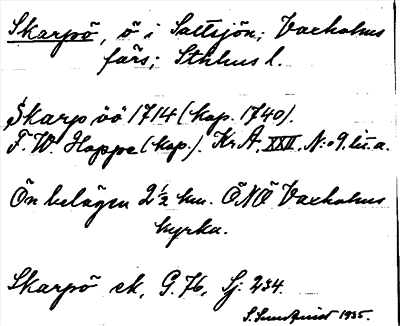 Skarpö, ö i Saltsjön; Vaxholms
förs; Sthlms l.
Skarp öö 1714 (kop. 1740).
F. W. Hoppe (kop.). Kr.A. XXII. N:o 9. lit. a.
Ön belägen 2½ km. ÖNÖ Vaxholms
kyrka.
Skarpö ek. G. 76, Sj. 234.
S. Sundquist 1935.